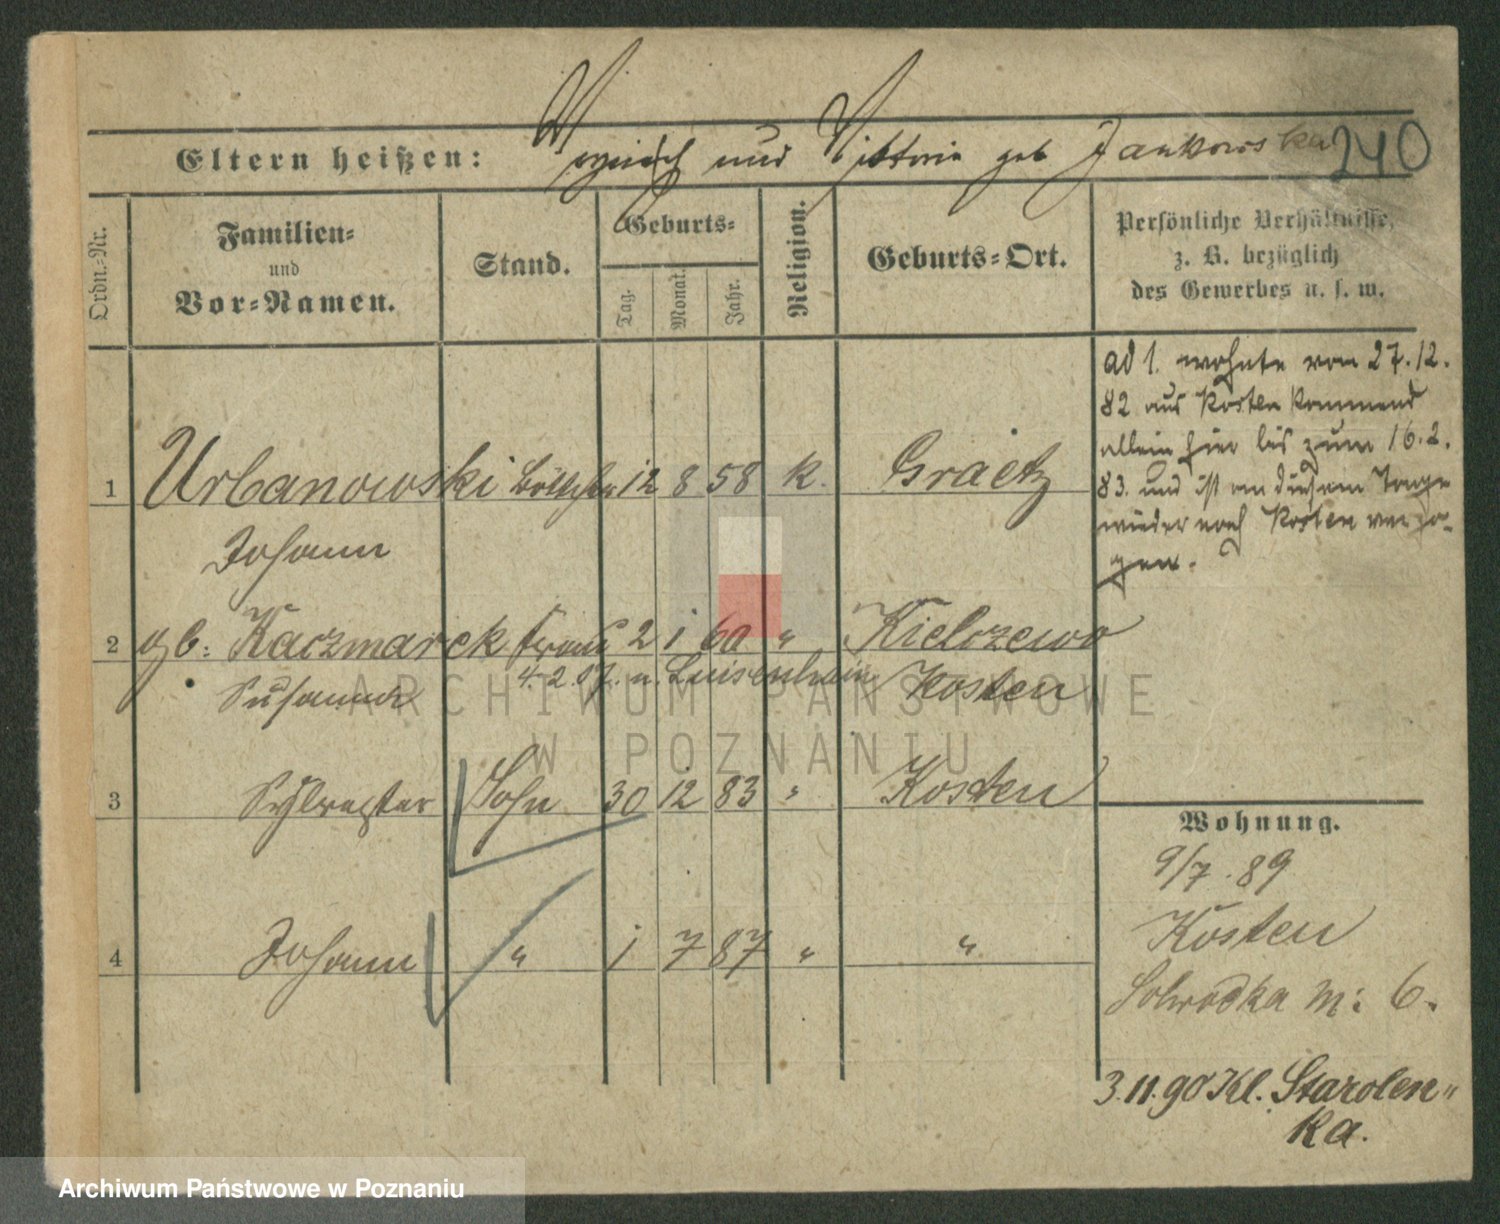 240
Eltern heißen: und Viktoria geb Jankowska
Ordn.-Nr.
Familien-
und
Vor-Namen.
Stand.
Geburts-
Tag.
Monat.
Jahr.
Religion.
Geburts-Ort.
Persönliche Verhältnisse,
z. B. bezüglich
des Gewerbes u. s. w.
ad 1. wohnte vom 27.12.
82 aus Kosten kommend
allein hier bis zum 16.2.
83. und ist an diesem Tage
wieder nach Kosten verzo-
gen.
1 Urbanowski Böttcher 12 8 58 k. Graetz
Johann
2 gb: Kaczmarek Frau 2 1 60 " Kielczewo
Susanna 4.2.07. n. Luisenhain Kosten
3 Sylvester Sohn 30 12 83 " Kosten
4 Johann " 1 7 87 " "
Wohnung.
9/7. 89
Kosten
6.
3.11.90 Kl. Starolen-
ka.
ARCHIWUM PAŃSTWOWE
W POZNANIU
Archiwum Państwowe w Poznaniu